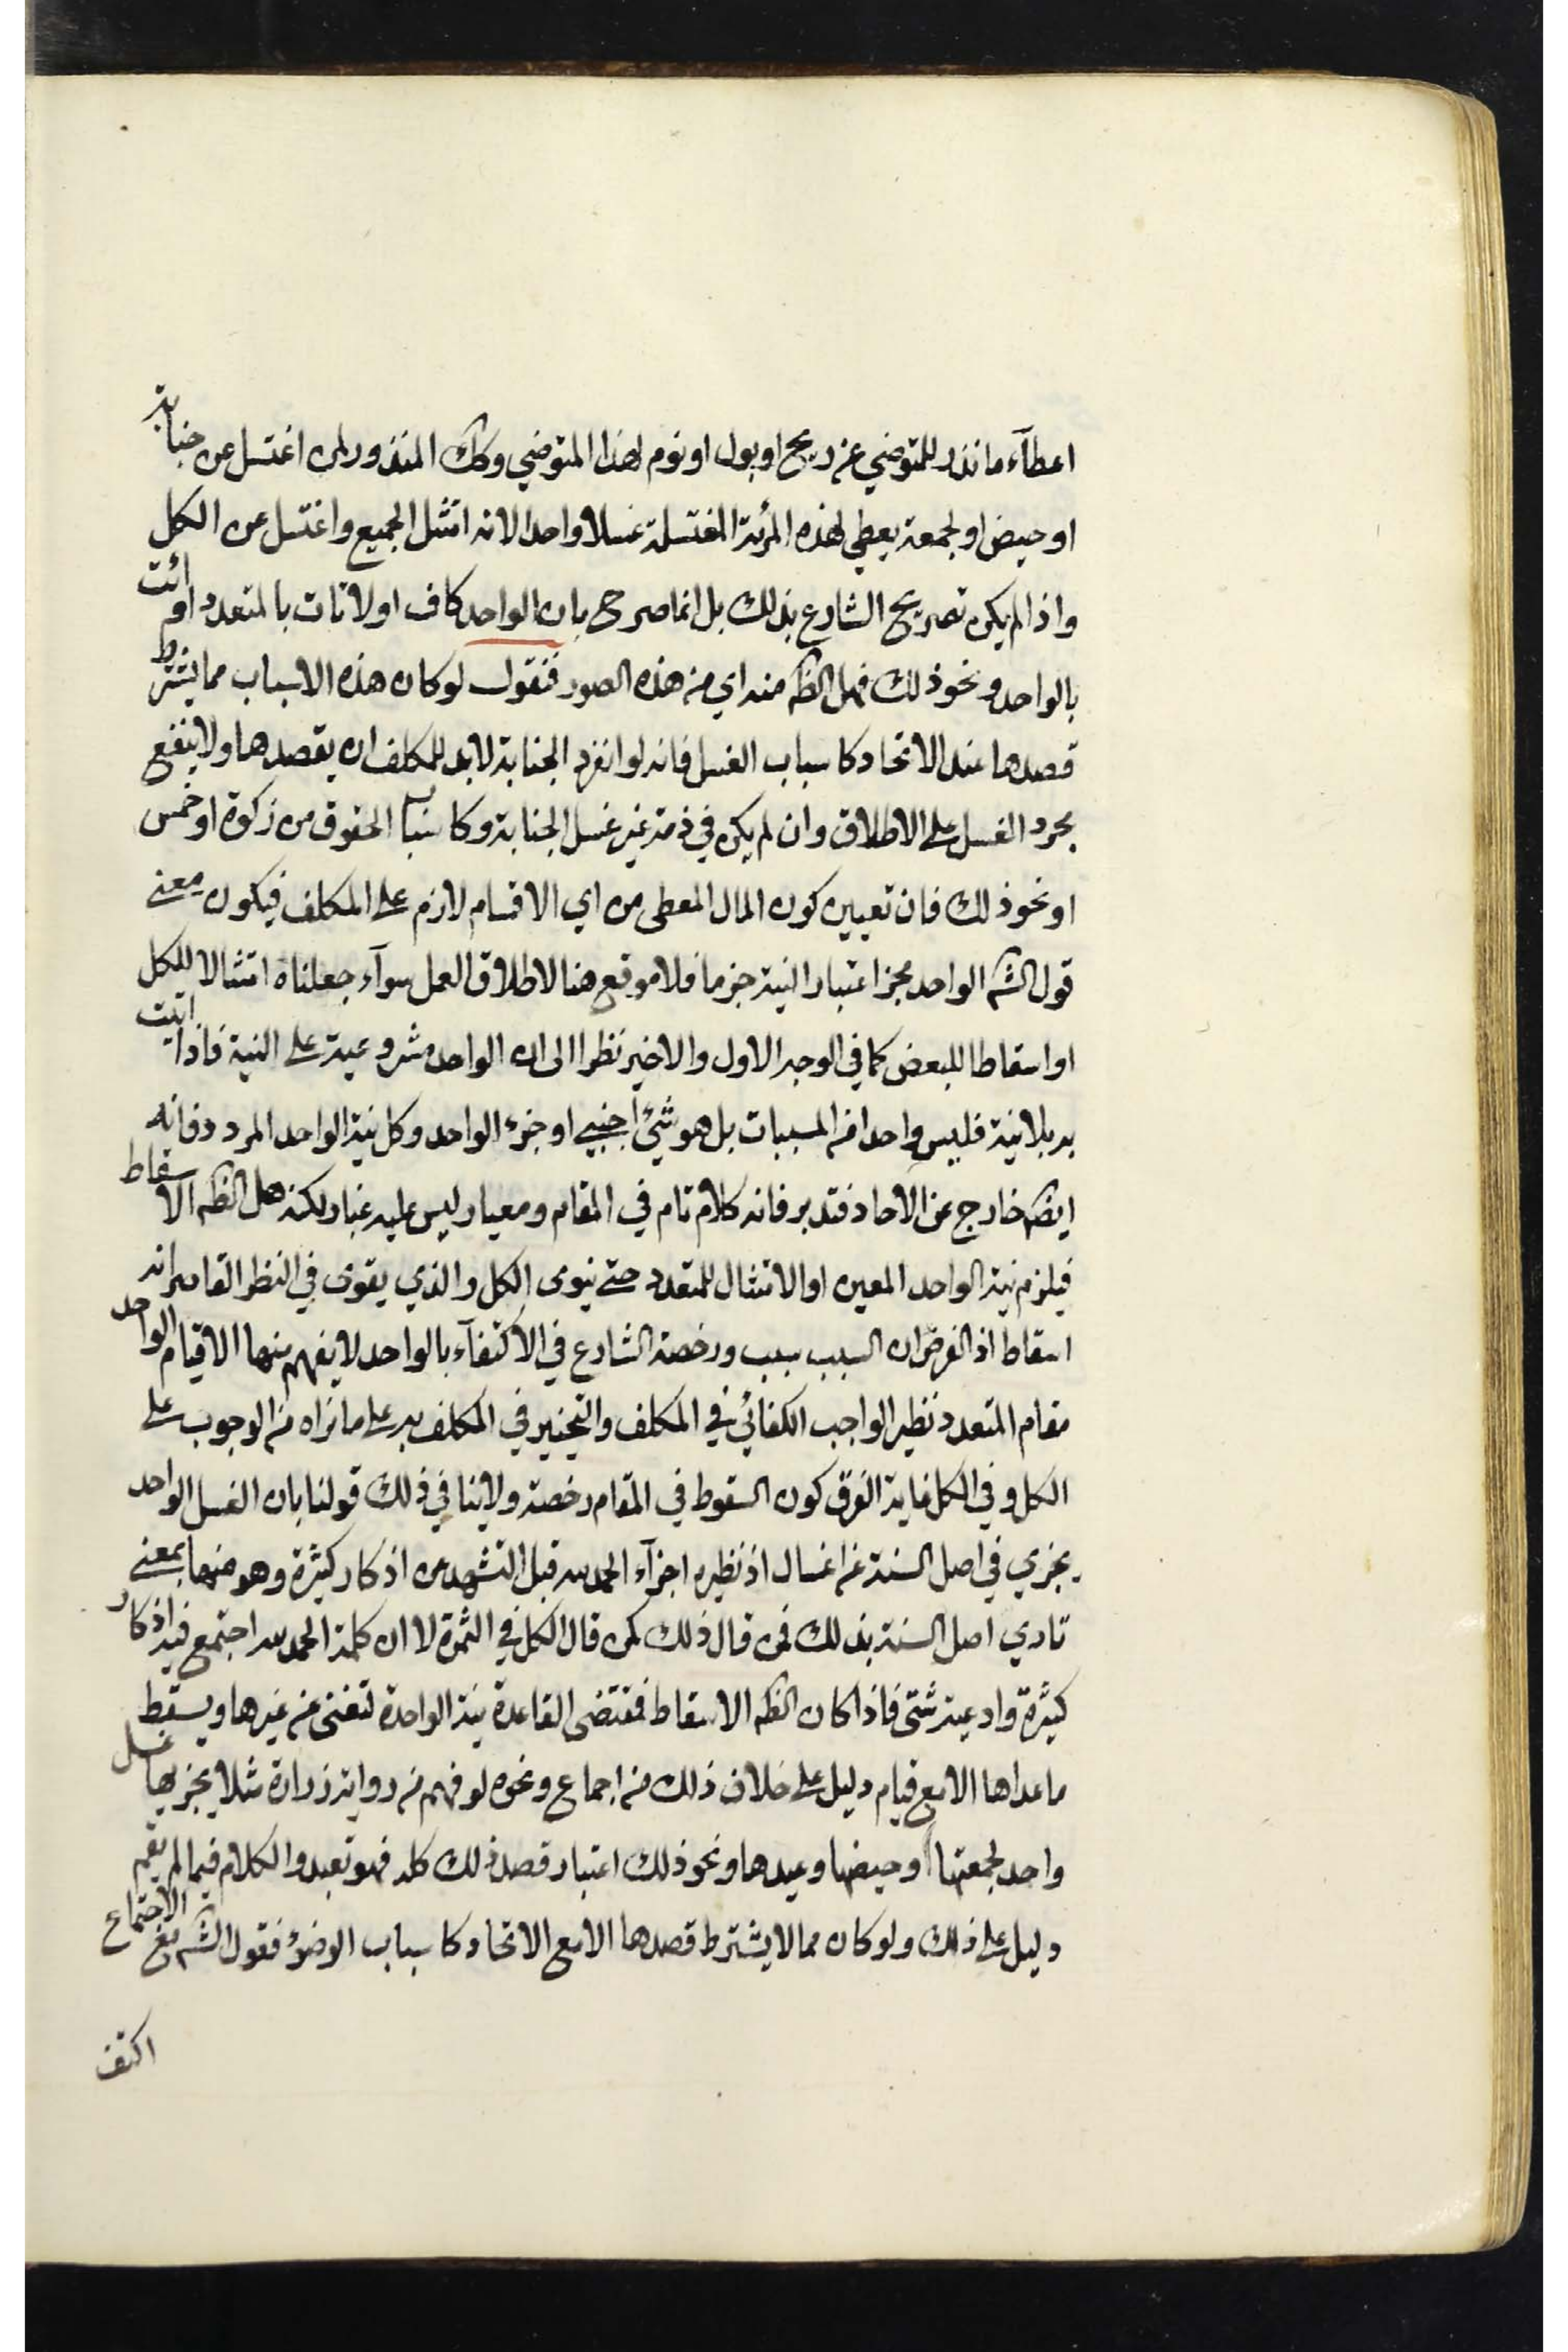 اعطآء ما نذر للمتوضي عن ريح او بول او نوم لهذا المتوضي وكك المنذور لمن اغتسل عن جنابة
او حيض او لجمعة يعطي لهذه المرئة المغتسلة غسلا واحدا لانه امتثل الجميع واغتسل عن الكل
واذا لم يكن تصريح الشارع بذلك بل انما صرح بان الواحد كاف او لا تات بالمتعدد او ائت
بالواحد ونحو ذلك فهل الظم منه اي من هذه الصور فنقول لو كان هذه الاسباب مما يشترط
قصدها عند الاتحاد كاسباب الغسل فانه لو انفرد الجنابة لابد للمكلف ان يقصدها ولا ينفع
مجرد الغسل على الاطلاق وان لم يكن في ذمته غير غسل الجنابة وكاسباب الحقوق من زكوة او خمس
او نحو ذلك فان تعيين كون المال المعطى من اي الاقسام لازم على المكلف فيكون معنى
قول الشم الواحد مجز اعتبار النية جزما فلا موقع هنا لاطلاق العمل سوآء جعلناه امتثالا للكل
او اسقاطا للبعض كما في الوجه الاول والاخير نظرا الى ان الواحد مشروعيته على النية فاذا اتيت
به بلا نية فليس واحدا من المسببات بل هو شيئ اجنبي او جزء الواحد وكل نية الواحد المردد فانه
ايضم خارج عن الاحاد فتدبر فانه كلام تام في المقام ومعيار ليس عليه غبار لكنه هل الظم الاسقاط
فيلزم نية الواحد المعين او الامتثال للمتعدد حتى ينوى الكل والذي يقوى في النظر القاصر انه
اسقاط اذ الفرض ان السبب سبب ورخصة الشارع في الاكتفآء بالواحد لا يفهم منها الا قيام الواحد
مقام المتعدد نظير الواجب الكفائي في المكلف والتخيير في المكلف به على ما نراه من الوجوب على
الكل وفي الكل غاية الفرق كون السقوط في المقام رخصة ولا ينافي ذلك قولنا بان الغسل الواحد
يجزي في اصل السنة عن اغسال اذ نظيره اجزآء الحمد لله قبل التشهد من اذكار كثيرة وهو منها بمعنى
تادي اصل السنة بذلك فمن قال ذلك كمن قال الكل في الثمرة لا ان كلمة الحمد لله اجتمع فيه اذكار
كثيرة وادعية شتى فاذا كان الظم الاسقاط فمقتضى القاعدة نية الواحدة لتغنى عن غيرها ويسقط
ما عداها الا مع قيام دليل على خلاف ذلك من اجماع ونحوه لو فهم من رواية زرارة مثلا يجزيها غسل
واحد لجمعتها وحيضها وعيدها ونحو ذلك اعتبار قصد ذلك كله فهو تعبد والكلام فيما لم يقم
دليل على ذلك ولو كان مما لا يشترط قصدها الا مع الاتحاد كاسباب الوضوء فقول الشم مع الاجتماع
اكتف